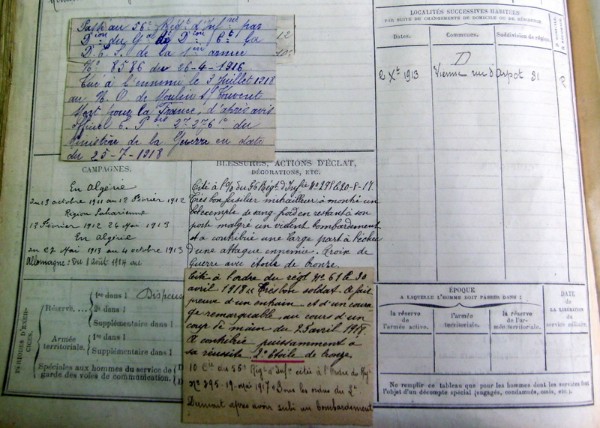 Passé au 56e Régt d'Infrie par
Don du Gal
D. E. S. de la 1ère armée
No 8586 du 26-4-1916
Tué à l'ennemi le 3 Juillet 1918
au N. O. de Moulin s/Touvent
Mort pour la France, d'après avis
officiel 27.276 du
Ministère de la Guerre en date
du 25-7-1918
LOCALITÉS SUCCESSIVES HABITÉES
PAR SUITE DE CHANGEMENTS DE DOMICILE OU DE RÉSIDENCE.
Dates.
Commune.
Subdivision de région.
D
2 Xbre 1913
Vienne rue d'Arpot 31
CAMPAGNES.
En Algérie
du 15 octobre 1911 au 17 Février 1912
Région Saharienne
17 Février 1912 26 Mai 1913
En Algérie
au 27 Mai 1913 4 octobre 1913
Allemagne: Du 1 août 1914 au
BLESSURES, ACTIONS D'ÉCLAT,
DÉCORATIONS, ETC.
Cité à l'O/ du 56 Régt d'Infrie No 298 du 20-8-17.
Très bon fusilier mitrailleur a montré un
bel exemple de sang froid en restant à son
poste malgré un violent bombardement
et a contribué une large part à l'échec
d'une attaque ennemie. Croix de
Guerre avec étoile de bronze.
Cité à l'ordre du régt No 61 du 30
avril 1918 « Très bon soldat. A fait
preuve d'un entrain et d'un coura
ge remarquable au cours d'un
coup de main du 23 avril 1918
A contribué puissamment à
sa réussite 2e étoile de bronze
10 Cie du 56e Régt d'Infrie cité à l'Ordre du Régt
No 395 19 mai 1917
après avoir subi un bombardement
PÉRIODES D'EXERCICES.
Réserve.
1re dans l
Dispensé
Supplémentaire dans l
2e dans l
Supplémentaire dans l
Armée
territoriale.
1re dans l
Supplémentaire dans l
Spéciales aux hommes du service de
garde des voies de communication.
ÉPOQUE
A LAQUELLE L'HOMME DOIT PASSER DANS :
la réserve
de l'armée active.
l'armée
territoriale.
la réserve
de l'armée territoriale.
DATE
DE LA LIBÉRATION
du service militaire.
Ne remplir ce tableau que pour les hommes dont les services font
l'objet d'un décompte spécial (engagés, condamnés, omis, etc.).